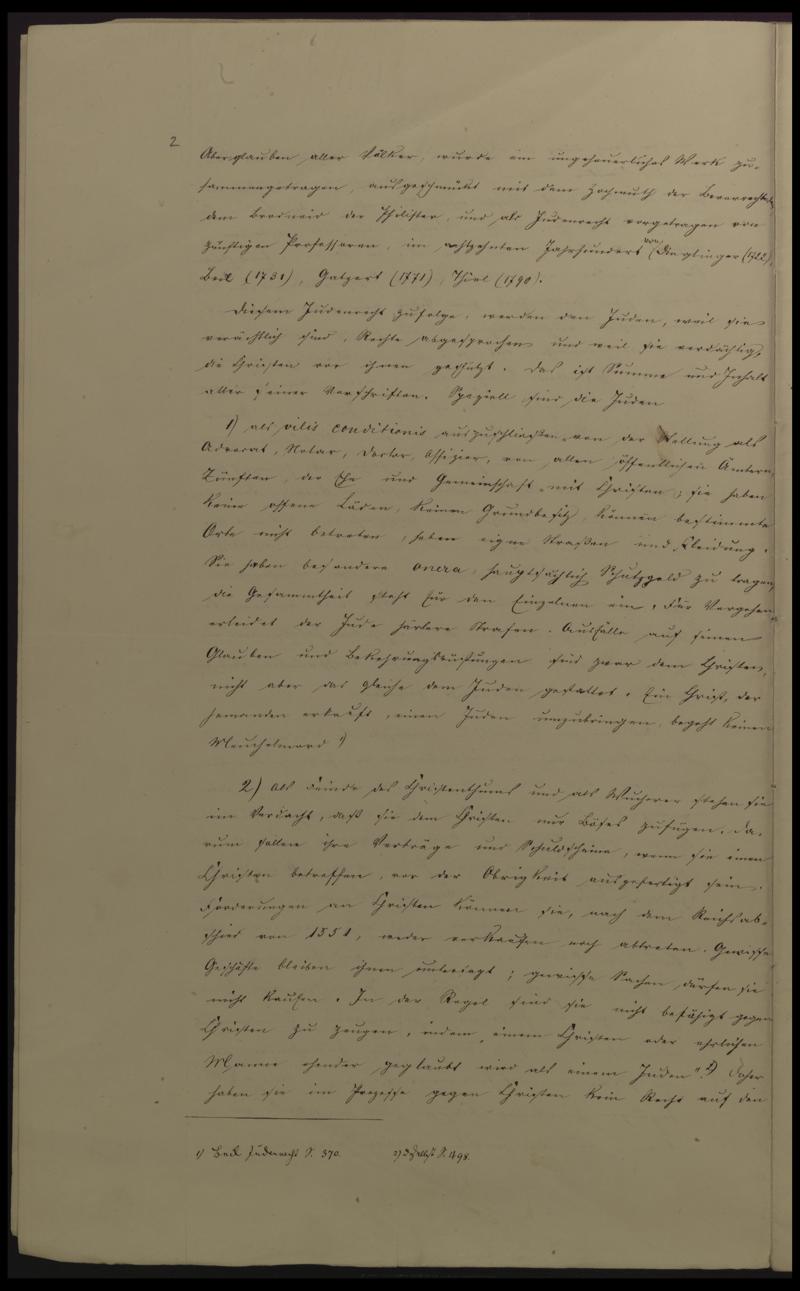 2
Aberglauben aller Völker, wurde ein ungeheuerliches Werk zu-
sammengetragen, ausgeschmückt mit dem Hochmuth der Bevorrechteten,
dem Brodneid der Philister, und als Judenrecht vorgetragen von
zünftigen Professoren, im achtzehnten Jahrhundert von (1722),
Beck (1731), Gatzert (1771), Thiel (1790).
Diesem Judenrecht zufolge, werden den Juden, weil sie
verächtlich sind, Rechte abgesprochen und weil sie verdächtig,
die Christen vor ihnen geschützt. Das ist Summe und Inhalt
aller seiner Vorschriften. Speziell sind die Juden
1) als vilis conditionis auszuschließen von der Stellung als
Advocat, Notar, Doctor, Offizier, von allen öffentlichen Ämtern,
Zünften, der Ehe und Gemeinschaft mit Christen; sie haben
keine offene Läden, keinen Grundbesitz, können bestimmte
Orte nicht betreten, haben eigne Straßen und Kleidung.
Sie haben besondere onera, hauptsächlich Schutzgeld zu tragen,
die Gesammtheit steht für den Einzelnen ein. Für Vergehen
erleidet der Jude härtere Strafen. Ausfälle auf seinen
Glauben und Bekehrungsrüstungen sind zwar dem Christen,
nicht aber das gleiche dem Juden gestattet. Ein Christ, der
jemanden erkauft, einen Juden umzubringen, begeht keinen
Meuchelmord 1)
2) Als Feinde des Christenthums und als Wucherer stehen sie
im Verdacht, daß sie dem Christen nur Böses zufügen. Da-
rum sollen ihre Verträge und Schuldscheine, wenn sie einen
Christen betreffen, vor der Obrigkeit ausgefertigt sein.
Forderungen an Christen können sie, nach dem Reichsab-
schied von 1551, weder verkaufen noch abtreten. Gewisse
Geschäfte bleiben ihnen untersagt; gewisse Sachen dürfen sie
nicht kaufen. In der Regel sind sie nicht befähigt gegen
Christen zu zeugen, indem „einem Christen oder ehrlichen
Manne ehender geglaubt wird als einem Juden“ 2) Daher
haben sie im Prozesse gegen Christen kein Recht auf den
1) Beck Judenrecht S. 370. 2) Daselbst S. 498.